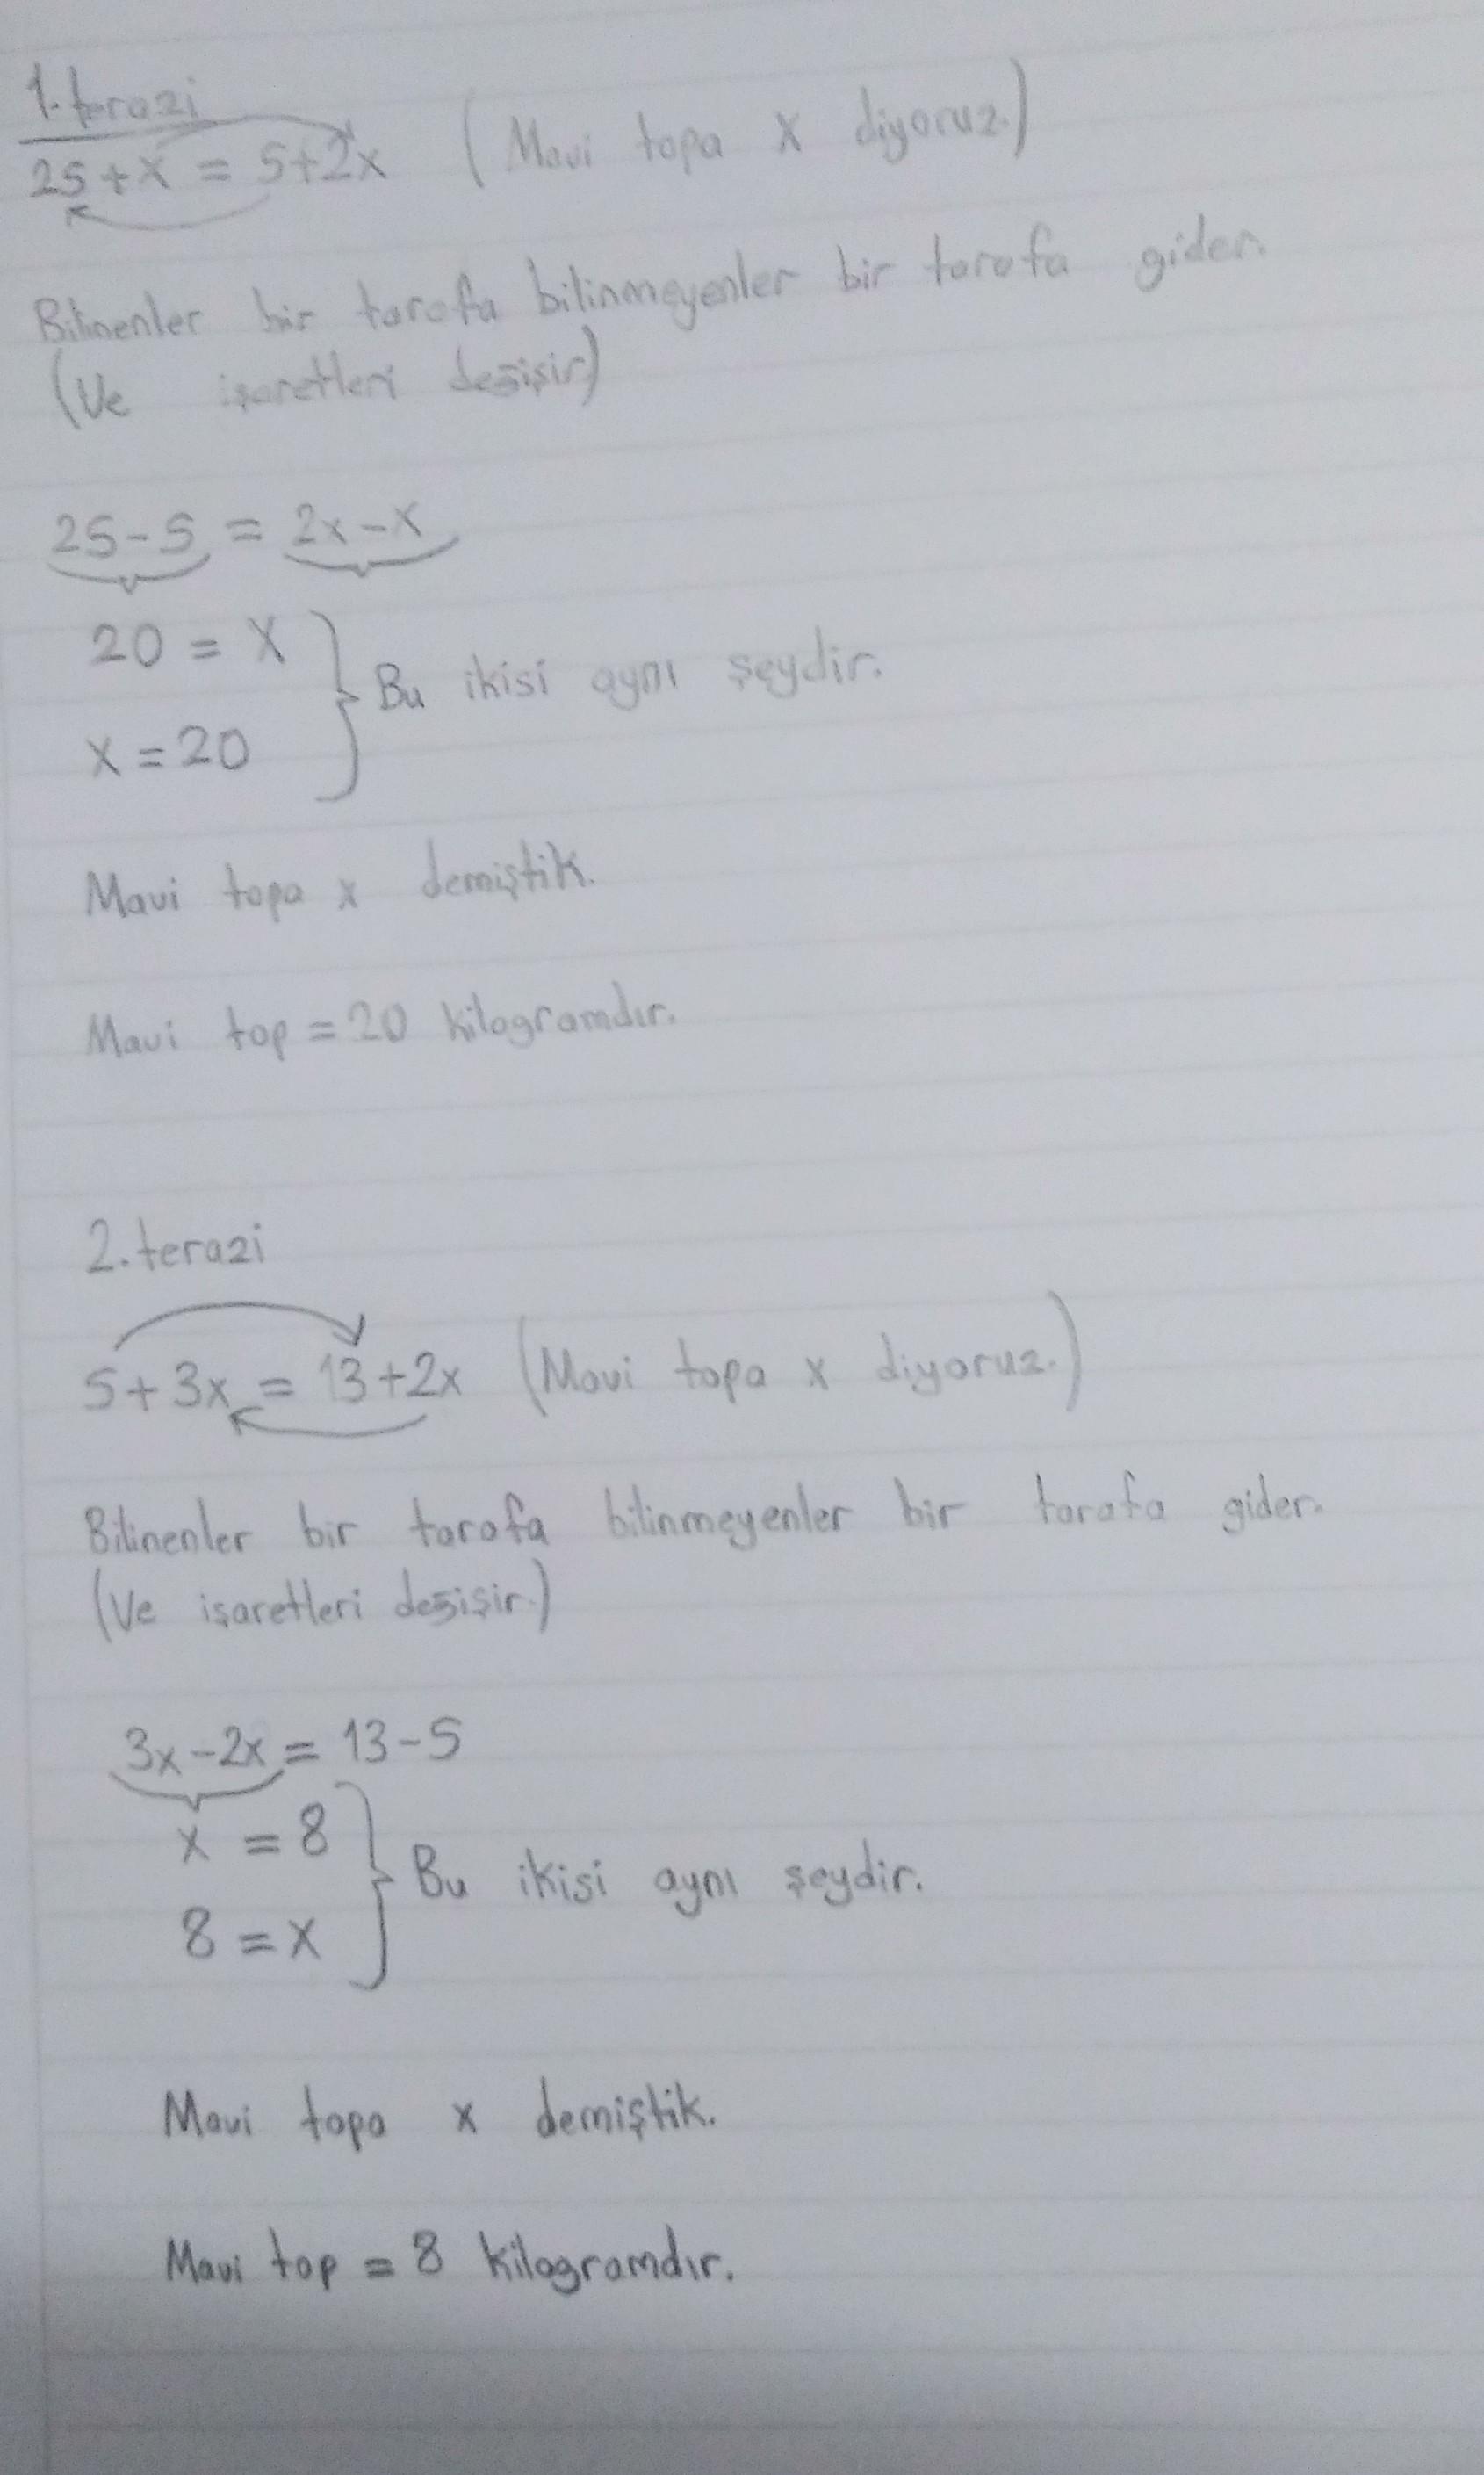 1. terazi
25+x = 5+2x (Mavi topa x diyoruz.)
Bilinenler bir tarafa bilinmeyenler bir tarafa gider.
(Ve işaretleri değişir)
25-5 = 2x-x
20 = x
Bu ikisi aynı şeydir.
x = 20
Mavi topa x demiştik.
Mavi top = 20 kilogramdır.
2. terazi
5+3x = 13+2x (Mavi topa x diyoruz.)
Bilinenler bir tarafa bilinmeyenler bir tarafa gider.
(Ve işaretleri değişir.)
3x-2x = 13-5
x = 8
Bu ikisi aynı şeydir.
8 = x
Mavi topa x demiştik.
Mavi top = 8 kilogramdır.